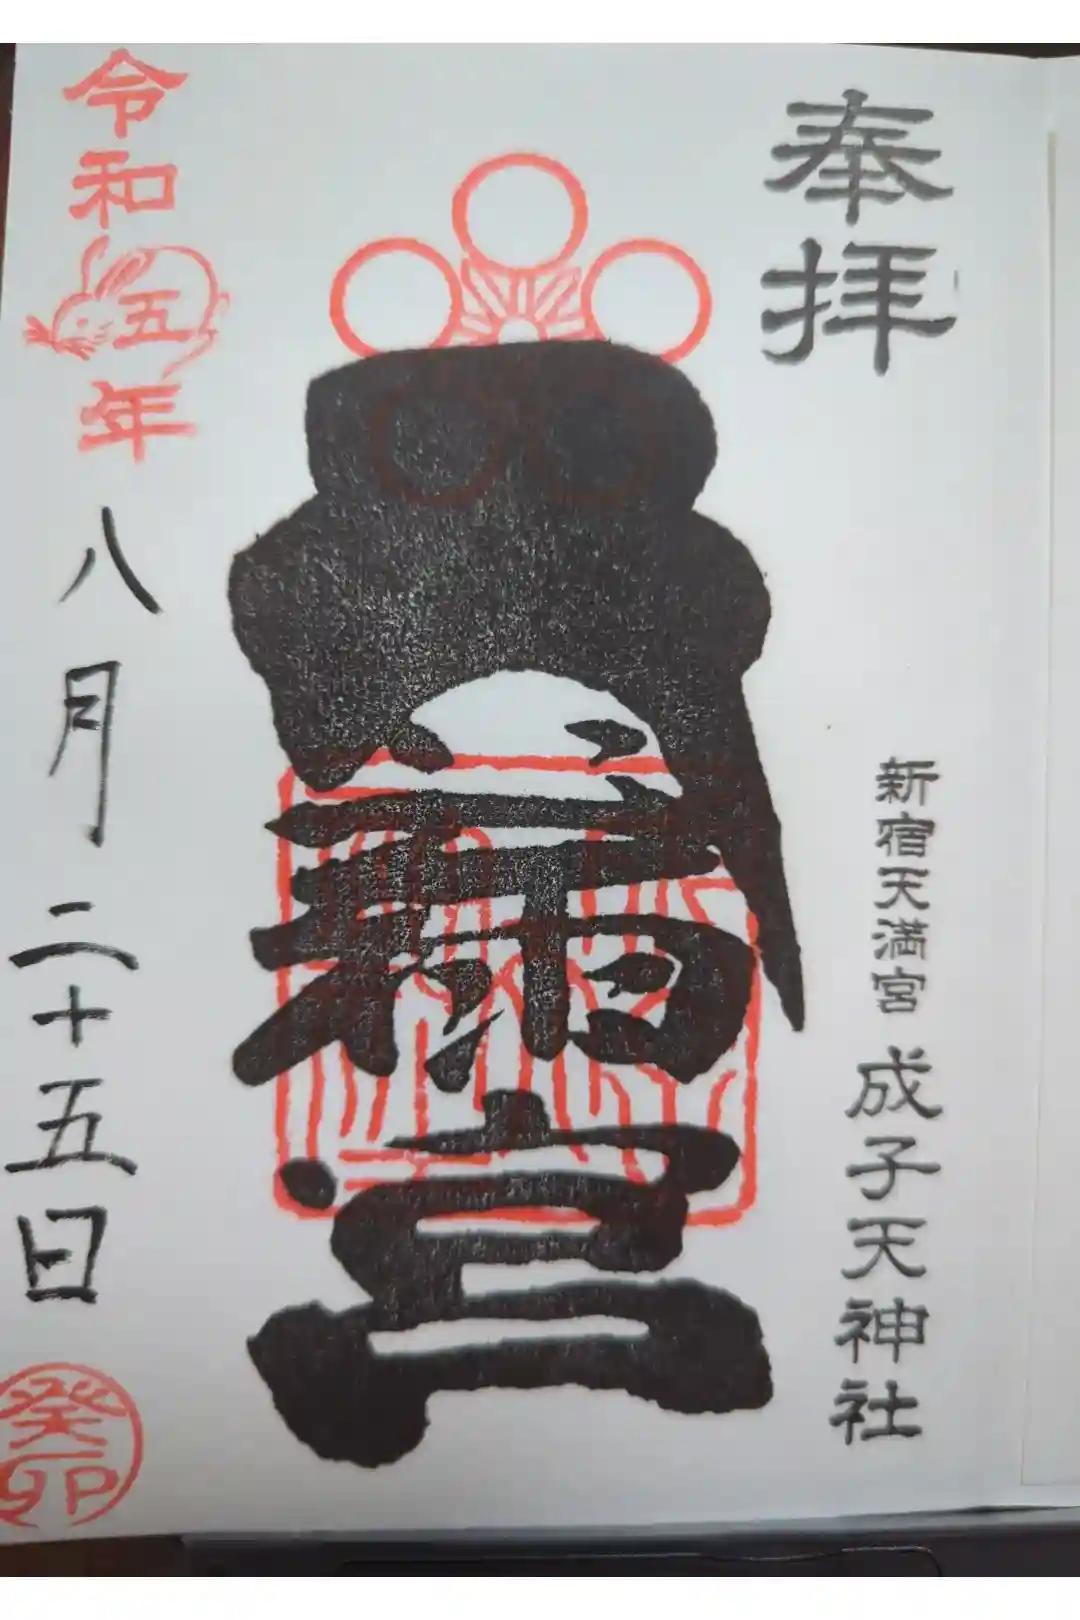 奉拝
新宿天満宮 成子天神社
令和五年
八月二十五日
癸卯